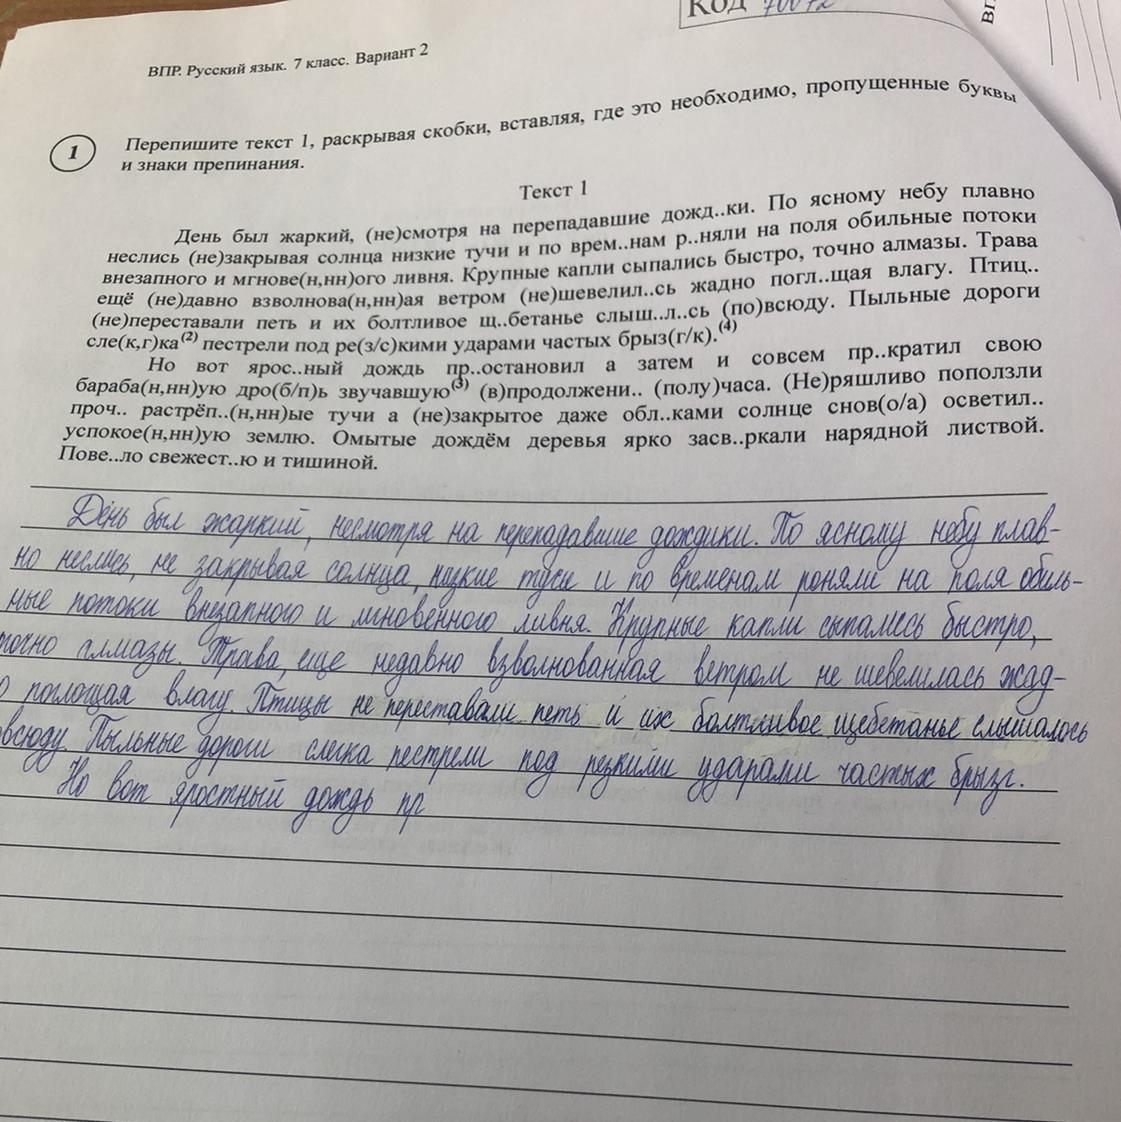 Код 70072
ВП
ВПР. Русский язык. 7 класс. Вариант 2
1
Перепишите текст 1, раскрывая скобки, вставляя, где это необходимо, пропущенные буквы
и знаки препинания.
Текст 1
День был жаркий, (не)смотря на перепадавшие дожд..ки. По ясному небу плавно
неслись (не)закрывая солнца низкие тучи и по врем..нам р..няли на поля обильные потоки
внезапного и мгнове(н,нн)ого ливня. Крупные капли сыпались быстро, точно алмазы. Трава
ещё (не)давно взволнова(н,нн)ая ветром (не)шевелил..сь жадно погл..щая влагу. Птиц..
(не)переставали петь и их болтливое щ..бетанье слыш..л..сь (по)всюду. Пыльные дороги
сле(к,г)ка(2) пестрели под ре(з/с)кими ударами частых брыз(г/к).(4)
Но вот ярос..ный дождь пр..остановил а затем и совсем пр..кратил свою
бараба(н,нн)ую дро(б/п)ь звучавшую(3) (в)продолжени.. (полу)часа. (Не)ряшливо поползли
проч.. растрёп..(н,нн)ые тучи а (не)закрытое даже обл..ками солнце снов(о/а) осветил..
успокое(н,нн)ую землю. Омытые дождём деревья ярко засв..ркали нарядной листвой.
Пове..ло свежест..ю и тишиной.
День был жаркий, несмотря на перепадавшие дождики. По ясному небу плав-
но неслись, не закрывая солнца, низкие тучи и по временам роняли на поля обиль-
ные потоки внезапного и мгновенного ливня. Крупные капли сыпались быстро,
точно алмазы. Трава, еще недавно взволнованная ветром не шевелилась жад-
о поглощая влагу. Птицы не переставали петь и их болтливое щебетанье слышалось
овсюду. Пыльные дороги слегка пестрели под резкими ударами частых брызг.
Но вот яростный дождь пр